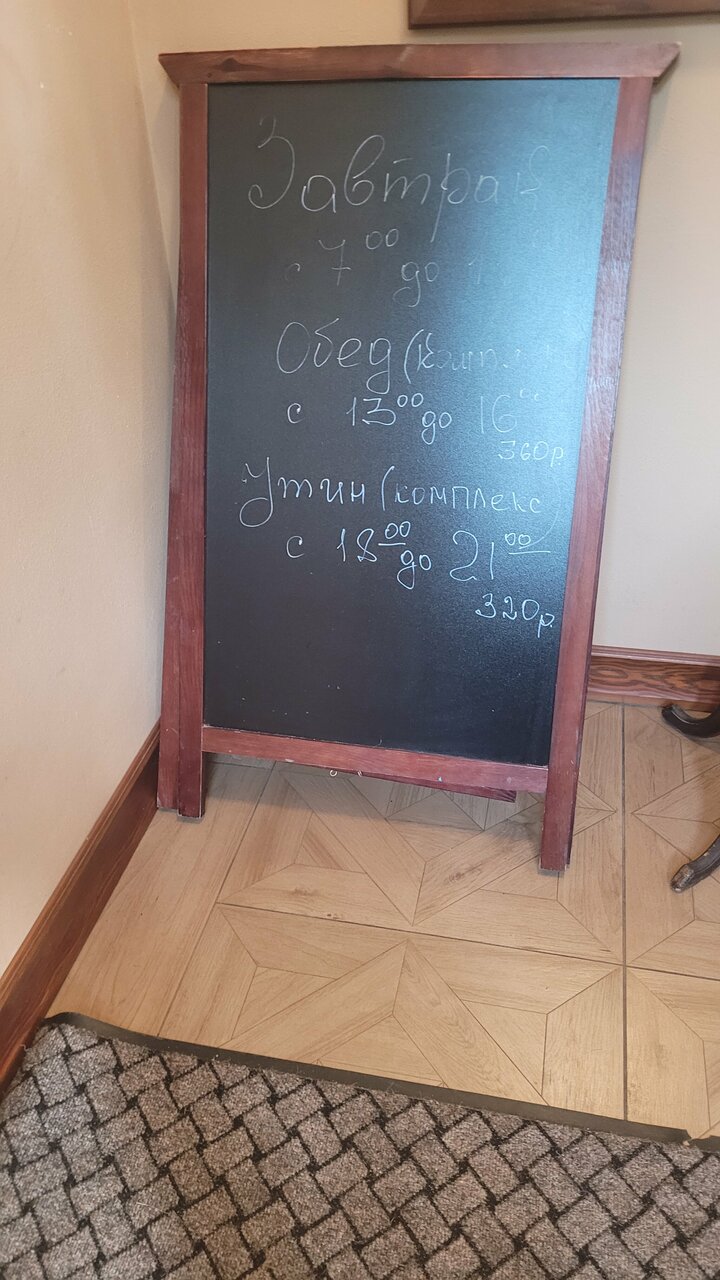 Завтрак
с 7⁰⁰ до
Обед (компл
с 13⁰⁰ до 16⁰⁰
360р
Утин (комплекс)
с 18⁰⁰ до 21⁰⁰
320р.